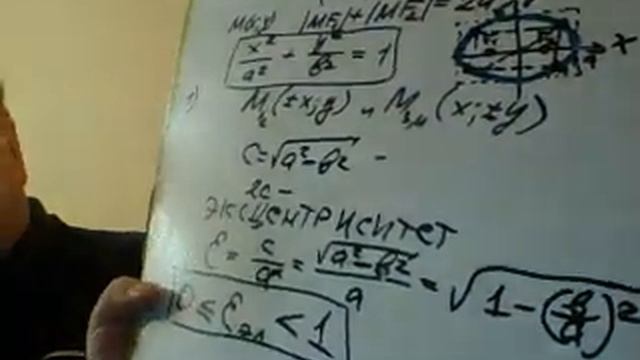 M(x;y) |MF₁|+|MF₂|=2a
x²/a² + y²/b² = 1
x
1) M₁,₂(±x;y) и M₃,₄(x;±y)
c=√(a²-b²) -
2c -
ЭКСЦЕНТРИСИТЕТ
ε = c/a = √(a²-b²)/a = √(1-(b/a)²)
0 ≤ ε эл < 1